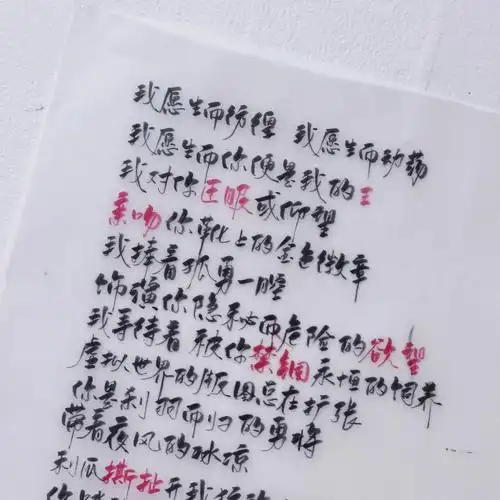 我愿生而彷徨 我愿生而劫
我愿生而你便是我的王
我对你正眼或仰望
亲吻你靴上的金色徽章
我捧着孤勇一腔
饰演你隐秘而危险的欲望
我等待着被你禁锢永恒的饲养
虚拟世界的版图总在扩张
你是刹羽而归的勇将
带着夜风的冰凉
利爪撕扯开我